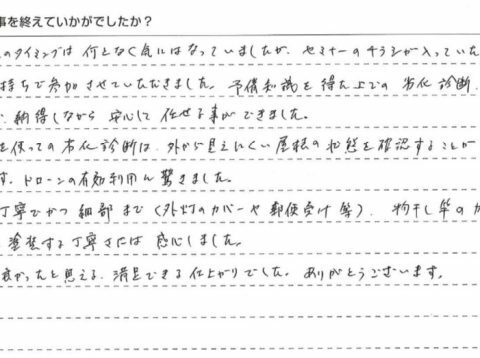 事を終えていかがでしたか？
のタイミングは何となく気にはなっていましたが、セミナーのチラシが入っていた
持ちで参加させていただきました。予備知識を得た上での劣化診断、
、納得しながら安心して任せる事ができました。
を使っての劣化診断は、外から見えにくい屋根の状態を確認することが
す。ドローンの有効利用に驚きました。
丁寧でかつ細部まで（外灯のカバーや郵便受け等）、物干し竿のカ
塗装する丁寧さには感心しました。
良かったと思える、満足できる仕上がりでした。ありがとうございます。